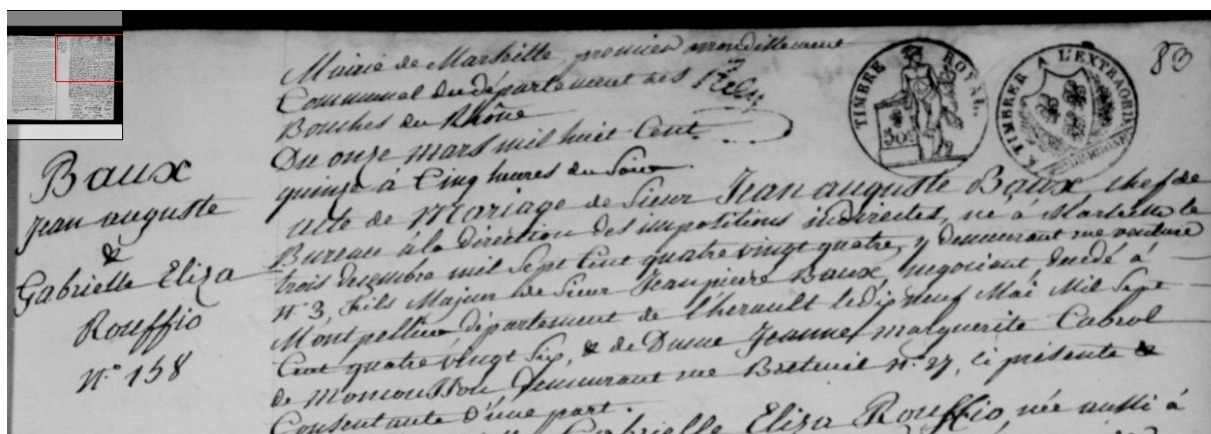 83
TIMBRE ROYAL.
50c
A TIMBRER A L'EXTRAORD.
Mairie de Marseille premier arrondissement
Communal du département des
Bouches du Rhône
Du onze mars mil huit Cent
quinze à Cinq heures du Soir
Baux
jean auguste
&
Gabrielle Eliza
Rouffio
N° 158
acte de Mariage de Sieur Jean auguste Baux, chef de
Bureau à la direction des impositions indirectes, né à Marseille le
trois decembre mil Sept Cent quatre vingt quatre, y demeurant rue venture
N° 3, fils Majeur de Sieur Jeanpierre Baux, negociant, decedé à
Montpellier département de l'herault le dix neuf Mai Mil Sept
Cent quatre vingt Six, & de Dame Jeanne marguerite Cabrol
de Momoussou demeurant rue Breteuil N° 27, ci présente &
Consentante d'une part.
Gabrielle Eliza Rouffio, née aussi à